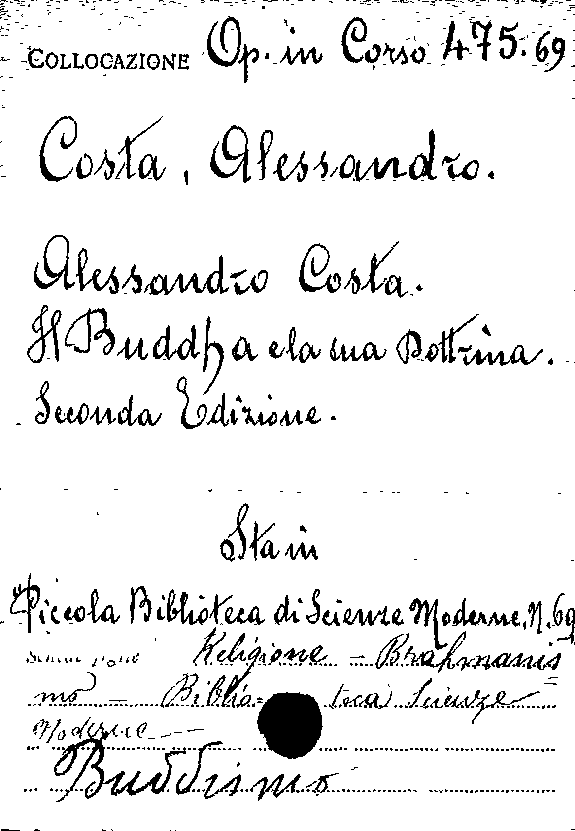 COLLOCAZIONE Op. in Corso 475.69
Costa, Alessandro.
Alessandro Costa.
Il Buddha e la sua Dottrina.
Seconda Edizione.
Sta in
Piccola Biblioteca di Scienze Moderne, N. 69
Religione - Brahmanis=
mo - Biblio=teca Scienze
Moderne -
Buddismo